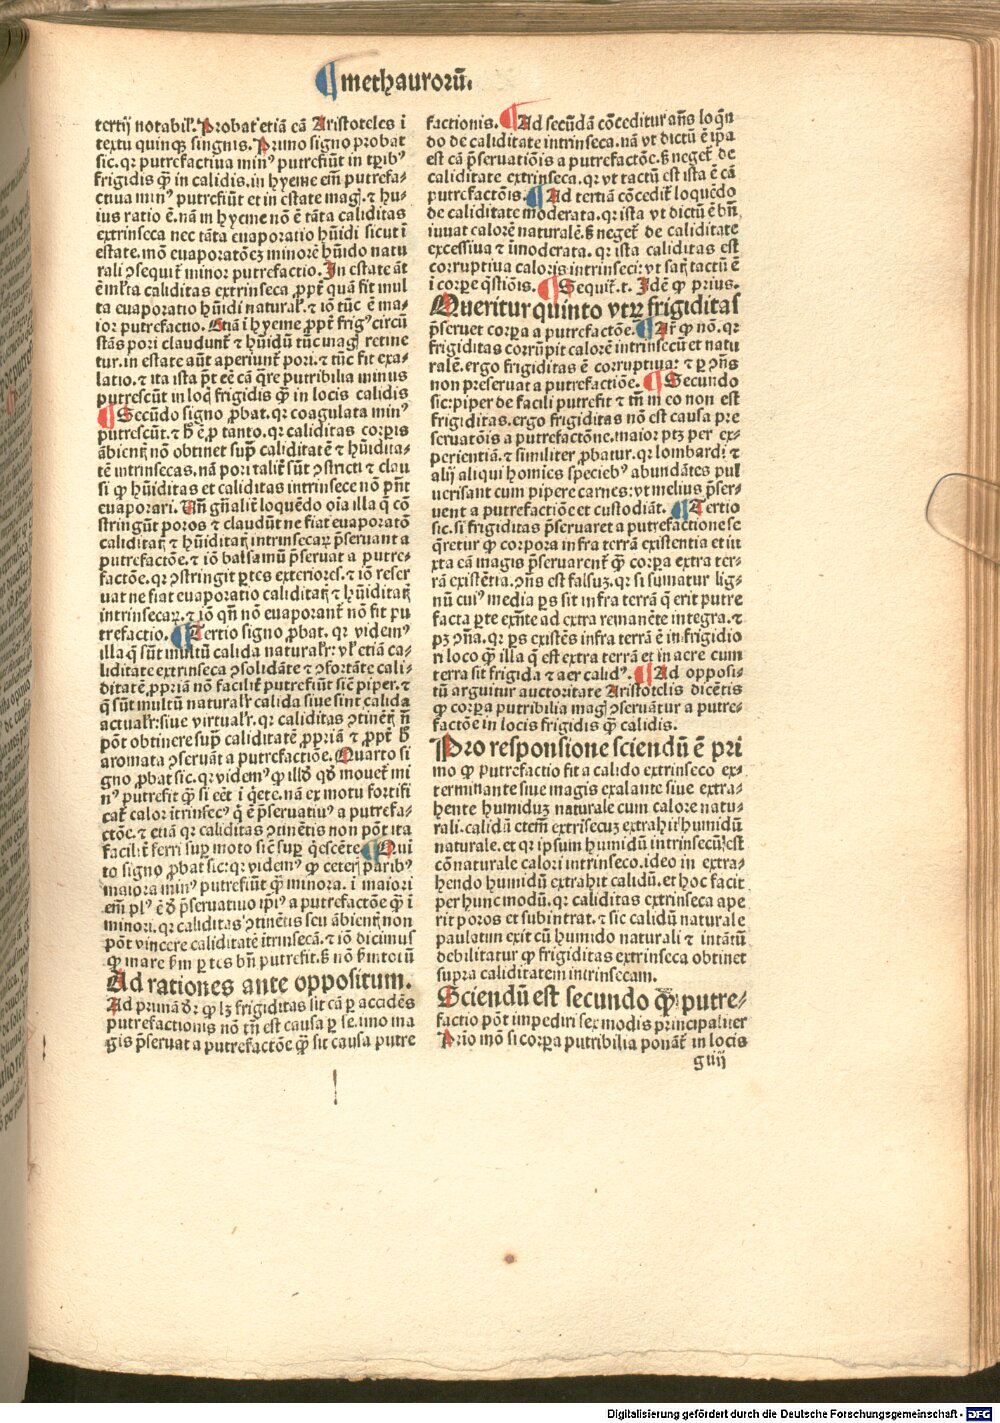 ¶ methaurorū.
tertij notabilʼ. Probat etiā cā Aristoteles ĩ
textu quinqꝫ singnis. Primo signo probat
sic. qꝛ putrefactiua minꝰ putrefiūt in tꝑibꝰ
frigidis ꝙ̄ in calidis. in hyeme em̄ putrefa-
ctiua minꝰ putrefiūt et in estate magꝭ. ⁊ hu-
ius ratio ē. nā in hyeme nō ē tāta caliditas
extrinseca nec tāta euaporatio hūidi sicut ĩ
estate. mō euaporatōeꝫ minorē hūido natu
rali ꝯsequit̄ minor putrefactio. In estate āt
ē mĺta caliditas extrinseca ꝓpt̄ quā fit mul
ta euaporatio hūidi naturalꝭ. ⁊ iō tūc ē ma-
ior putrefactio. Etiā ĩ hyeme ꝓpt̄ frigꝰ circū
stās pori claudunt̄ ⁊ hūidū tūc magꝭ retine
tur. in estate aūt aperiunt̄ pori. ⁊ tūc fit exa-
latio. ⁊ ita ista p̄t eē cā q̄re putribilia minus
putrescūt in locꝭ frigidis ꝙ̄ in locis calidis
¶ Secūdo signo ꝓbat. qꝛ coagulata minꝰ
putrescūt. ⁊ h̄ ē ꝓ tanto. qꝛ caliditas corꝑis
ābientꝭ non obtinet suꝑ caliditatē ⁊ hūidita-
tē intrinsecas. nā pori talit̄ sūt ꝯstricti ⁊ clau
si ꝙ hūiditas et caliditas intrinsece nō pn̄t
euaporari. Vn̄ gn̄alit̄ loquēdo oīa illa q̄ cō
stringūt poros ⁊ claudūt ne fiat euaporatō
caliditatꝭ ⁊ hūiditatꝭ intrinsecaꝝ p̄seruant a
putrefactōe. ⁊ iō balsamū p̄seruat a putre-
factōe. qꝛ ꝯstringit ꝑtes exteriores. ⁊ iō reser
uat ne fiat euaporatio caliditatꝭ ⁊ hūiditatꝭ
intrinsecaꝝ. ⁊ iō qn̄ nō euaporant̄ nō fit pu
trefactio. ¶ Tertio signo ꝓbat. qꝛ videmꝰ
illa q̄ sūt multū calida naturalr̄: vĺ etiā ca-
liditate extrinseca ꝯsolidāte ⁊ ꝯfortāte cali-
ditatē ꝓpriā nō facilit̄ putrefiūt sic̄ piper. ⁊
q̄ sūt multū naturalr̄ calida siue sint calida
actualr̄: siue virtualr̄. qꝛ caliditas ꝯtinētꝭ n̄
pōt obtinere suꝑ caliditatē ꝓpriā ⁊ ꝓpt̄ h̄
aromata ꝯseruāt a putrefactiōe. Quarto si
gno ꝓbat sic. qꝛ videmꝰ ꝙ illd̄ qd̄ mouet̄ mi
nꝰ putrefit ꝙ̄ si eēt ĩ q̄ete. nā ex motu fortifi
cat̄ calor ĩtrinsecꝰ q̄ ē p̄seruatiuꝰ a putrefa-
ctōe. ⁊ etiā qꝛ caliditas ꝯtinētis non pōt ita
facilit̄ ferri suꝑ moto sic̄ suꝑ q̄escēte. ¶ Qui
to signo ꝓbat sic: qꝛ videmꝰ ꝙ ceterꝭ paribꝰ
maiora minꝰ putrefiūt ꝙ̄ minora. ĩ maiori
em̄ plꝰ ē d̄ p̄seruatiuo ipiꝰ a putrefactōe ꝙ̄ ĩ
minori. qꝛ caliditas ꝯtinētis seu ābientꝭ non
pōt vincere caliditatē ĩtrinsecā. ⁊ iō dicimus
ꝙ mare ẜm ꝑtes bn̄ putrefit. ẜꝫ nō ẜm totū
Ad rationes ante oppositum.
Ad primā dr̄ ꝙ lꝫ frigiditas sit cā ꝑ accidēs
putrefactionis nō tn̄ est causa ꝑ se. imo ma
gis p̄seruat a putrefactōe ꝙ̄ sit causa putre
factionis. ¶ Ad secūdā cōceditur an̄s loqn̄
do de caliditate intrinseca. nā vt dictū ē ip̄a
est cā p̄seruatiōis a putrefactōe. ẜꝫ neget̄ de
caliditate extrinseca. qꝛ vt tactū est ista ē cā
putrefactōis. ¶ Ad tertiā cōcedit̄ loquēdo
de caliditate moderata. qꝛ ista vt dictū ē bn̄
iuuat calorē naturalē. ẜꝫ neget̄ de caliditate
excessiua ⁊ īmoderata. qꝛ ista caliditas est
corruptiua caloris intrinseci: vt satꝭ tactū ē
ĩ corpe q̄stiōis. ¶ Sequit̄. t. Idē ꝙ prius.
Queritur quinto vtꝝ frigiditas
p̄seruet corꝑa a putrefactōe. ¶ Ar̄ ꝙ nō. qꝛ
frigiditas corrūpit calorē intrinsecū et natu
ralē. ergo frigiditas ē corruptiua: ⁊ ꝑ ꝯn̄s
non preseruat a putrefactiōe. ¶ Secundo
sic: piper de facili putrefit ⁊ tn̄ in eo non est
frigiditas. ergo frigiditas nō est causa pre
seruatōis a putrefactōne. maior ptꝫ per ex-
perientiā. ⁊ similiter ꝓbatur. qꝛ lombardi ⁊
alij aliqui homīes speciebꝰ abundātes pul
uerisant cum pipere carnes: vt melius p̄ser-
uent a putrefactiōe et custodiāt. ¶ Tertio
sic. si frigiditas p̄seruaret a putrefactione se
q̄retur ꝙ corpora infra terrā existentia et iu
xta eā magis p̄seruarent̄ ꝙ̄ corꝑa extra ter-
rā existētia. ꝯn̄s est falsuꝫ. qꝛ si sumatur lig-
nū cuiꝰ media ꝑs sit infra terrā q̄ erit putre
facta ꝑte exn̄te ad extra remanēte integra. ⁊
pꝫ ꝯn̄a. qꝛ ꝑs existēs infra terrā ē in frigidio
ri loco ꝙ̄ illa q̄ est extra terrā et in aere cum
terra sit frigida ⁊ aer calidꝰ. ¶ Ad opposi-
tū arguitur auctoritate Aristotelis dicētis
ꝙ corꝑa putribilia magꝭ ꝯseruātur a putre-
factōe in locis frigidis ꝙ̄ calidis.
Pro responsione sciendū ē pri
mo ꝙ putrefactio fit a calido extrinseco ex-
terminante siue magis exalante siue extra-
hente humiduꝫ naturale cum calore natu-
rali. calidū etem̄ extrīsecuꝫ extrahit humidū
naturale. et qꝛ ipsum humidū intrinsecū est
cōnaturale calori intrinseco. ideo in extra-
hendo humidū extrahit calidū. et hoc facit
per hunc modū. qꝛ caliditas extrinseca ape
rit poros et subintrat. ⁊ sic calidū naturale
paulatim exit cū humido naturali ⁊ intātū
debilitatur ꝙ frigiditas extrinseca obtinet
supra caliditatem intrinsecam.
Sciendū est secundo ꝙ̄ putre-
factio pōt impediri sex modis principaliter
Prīo mō si corꝑa putribilia ponāt̄ in locis
g iiij
Digitalisierung gefördert durch die Deutsche Forschungsgemeinschaft - DFG